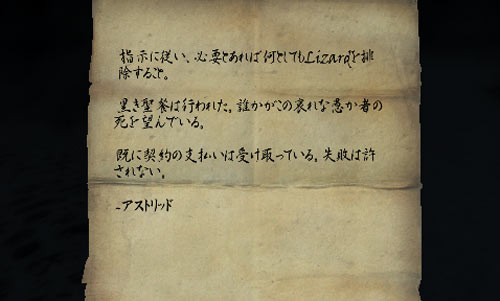 指示に従い、必要とあれば何としてもLizardを排
除すること。
黒き聖餐は行われた。誰かがこの哀れな愚か者の
死を望んでいる。
既に契約の支払いは受け取っている。失敗は許
されない。
-アストリッド